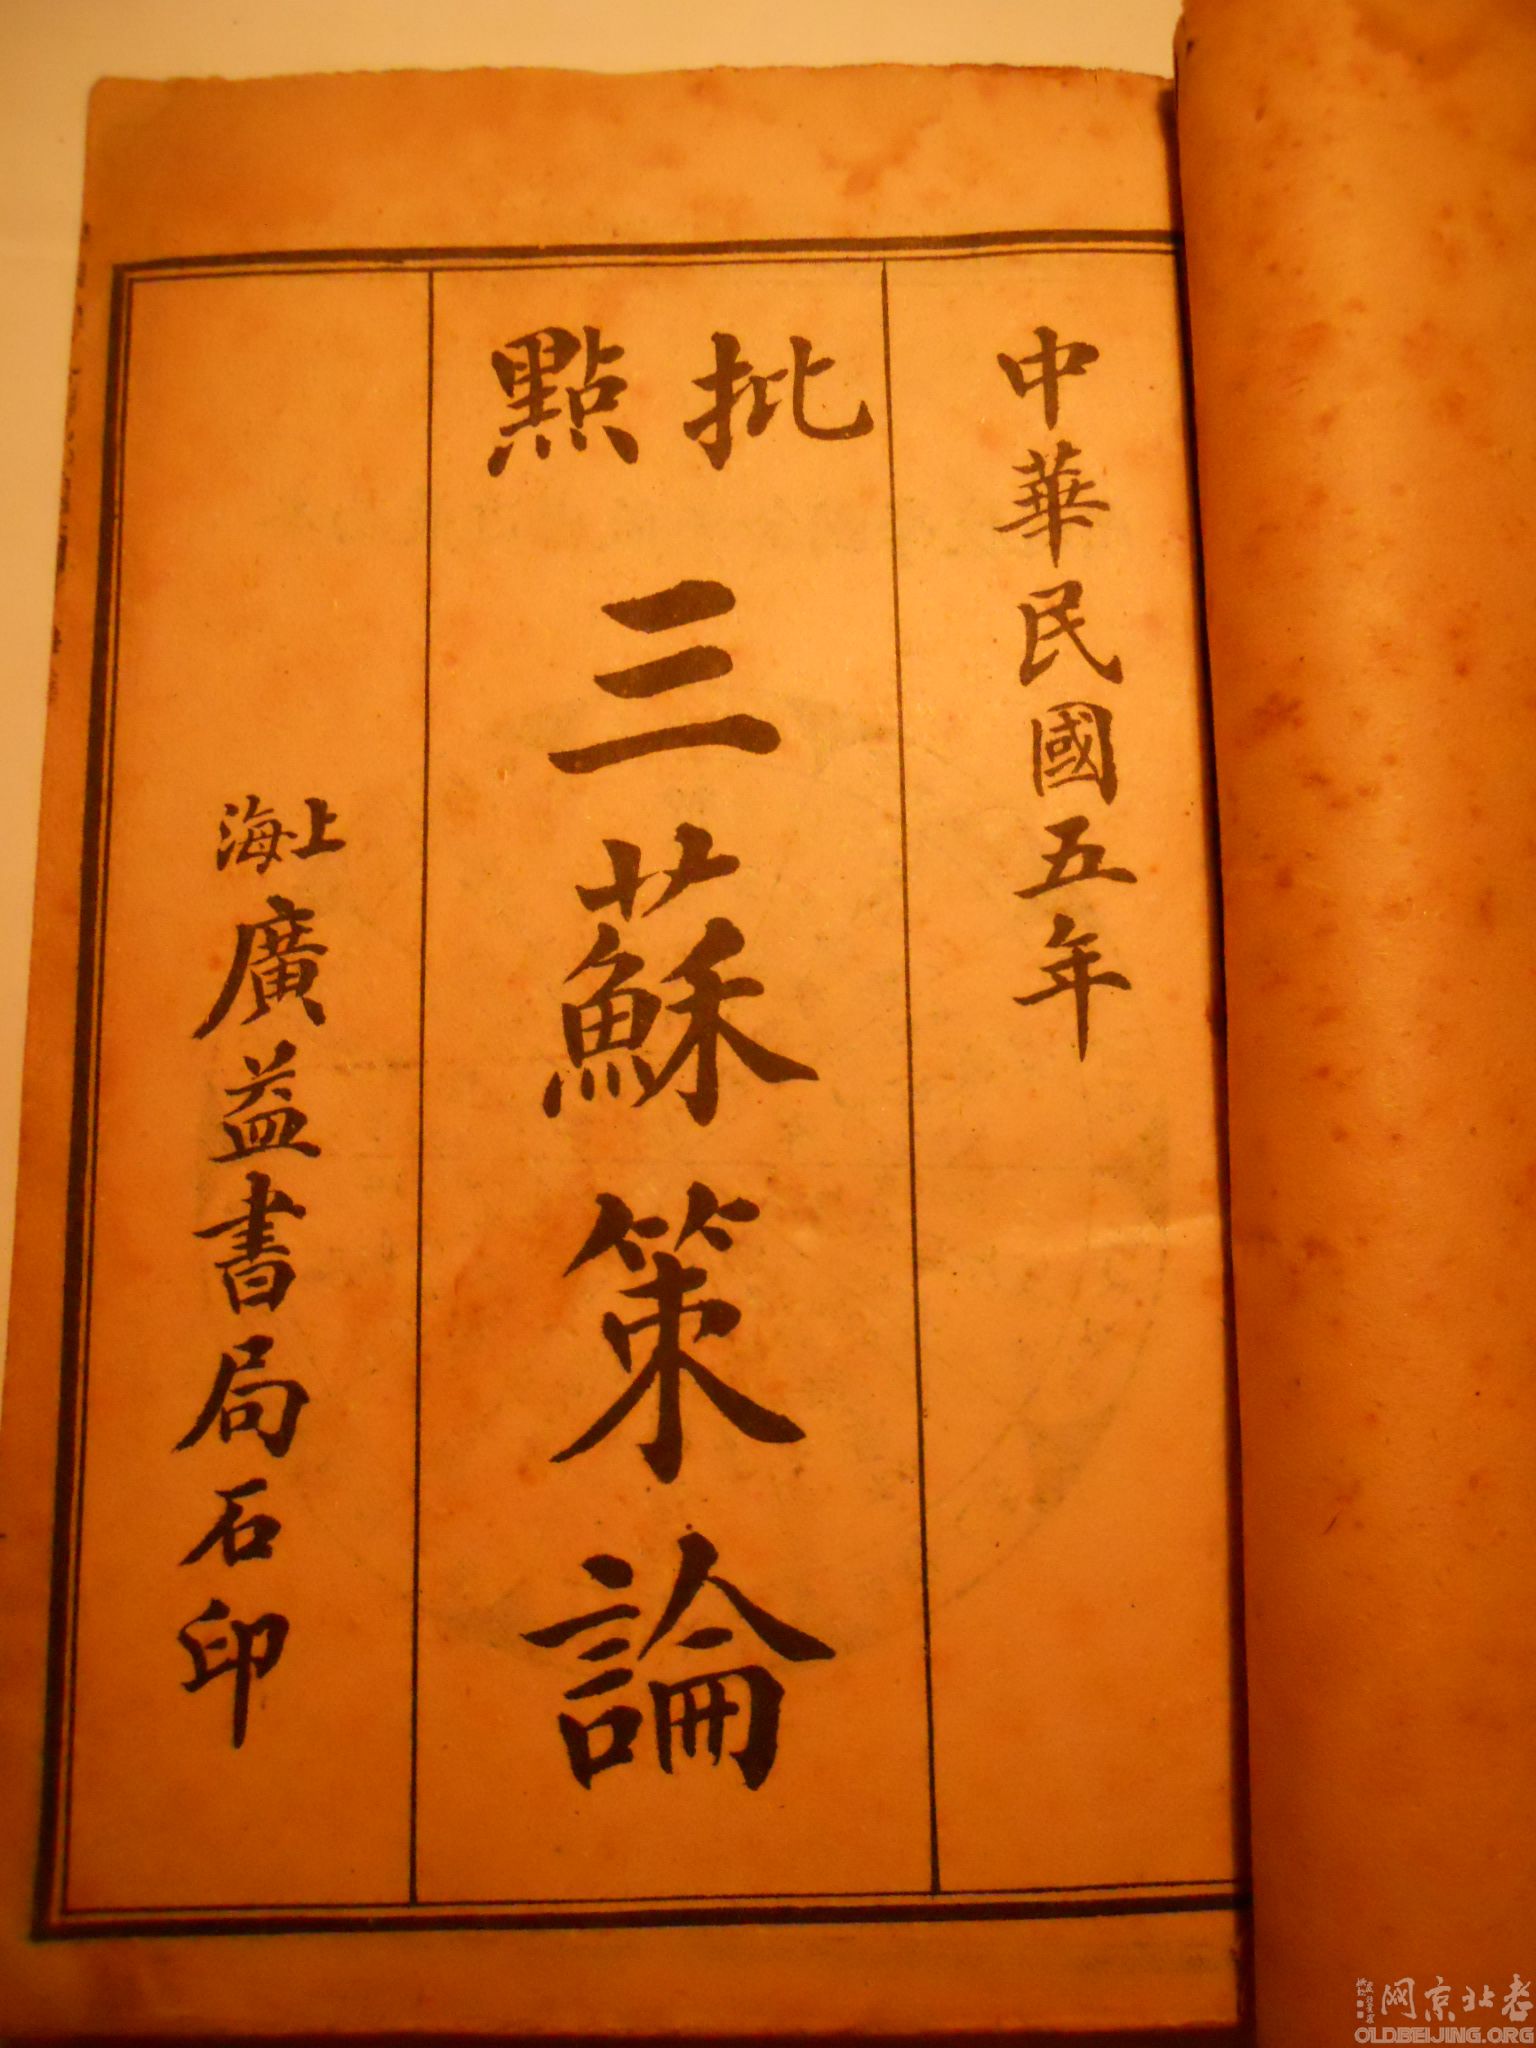 中華民國五年
批點
三蘇策論
上海
廣益書局石印
老北京网
OLDBEIJING.ORG